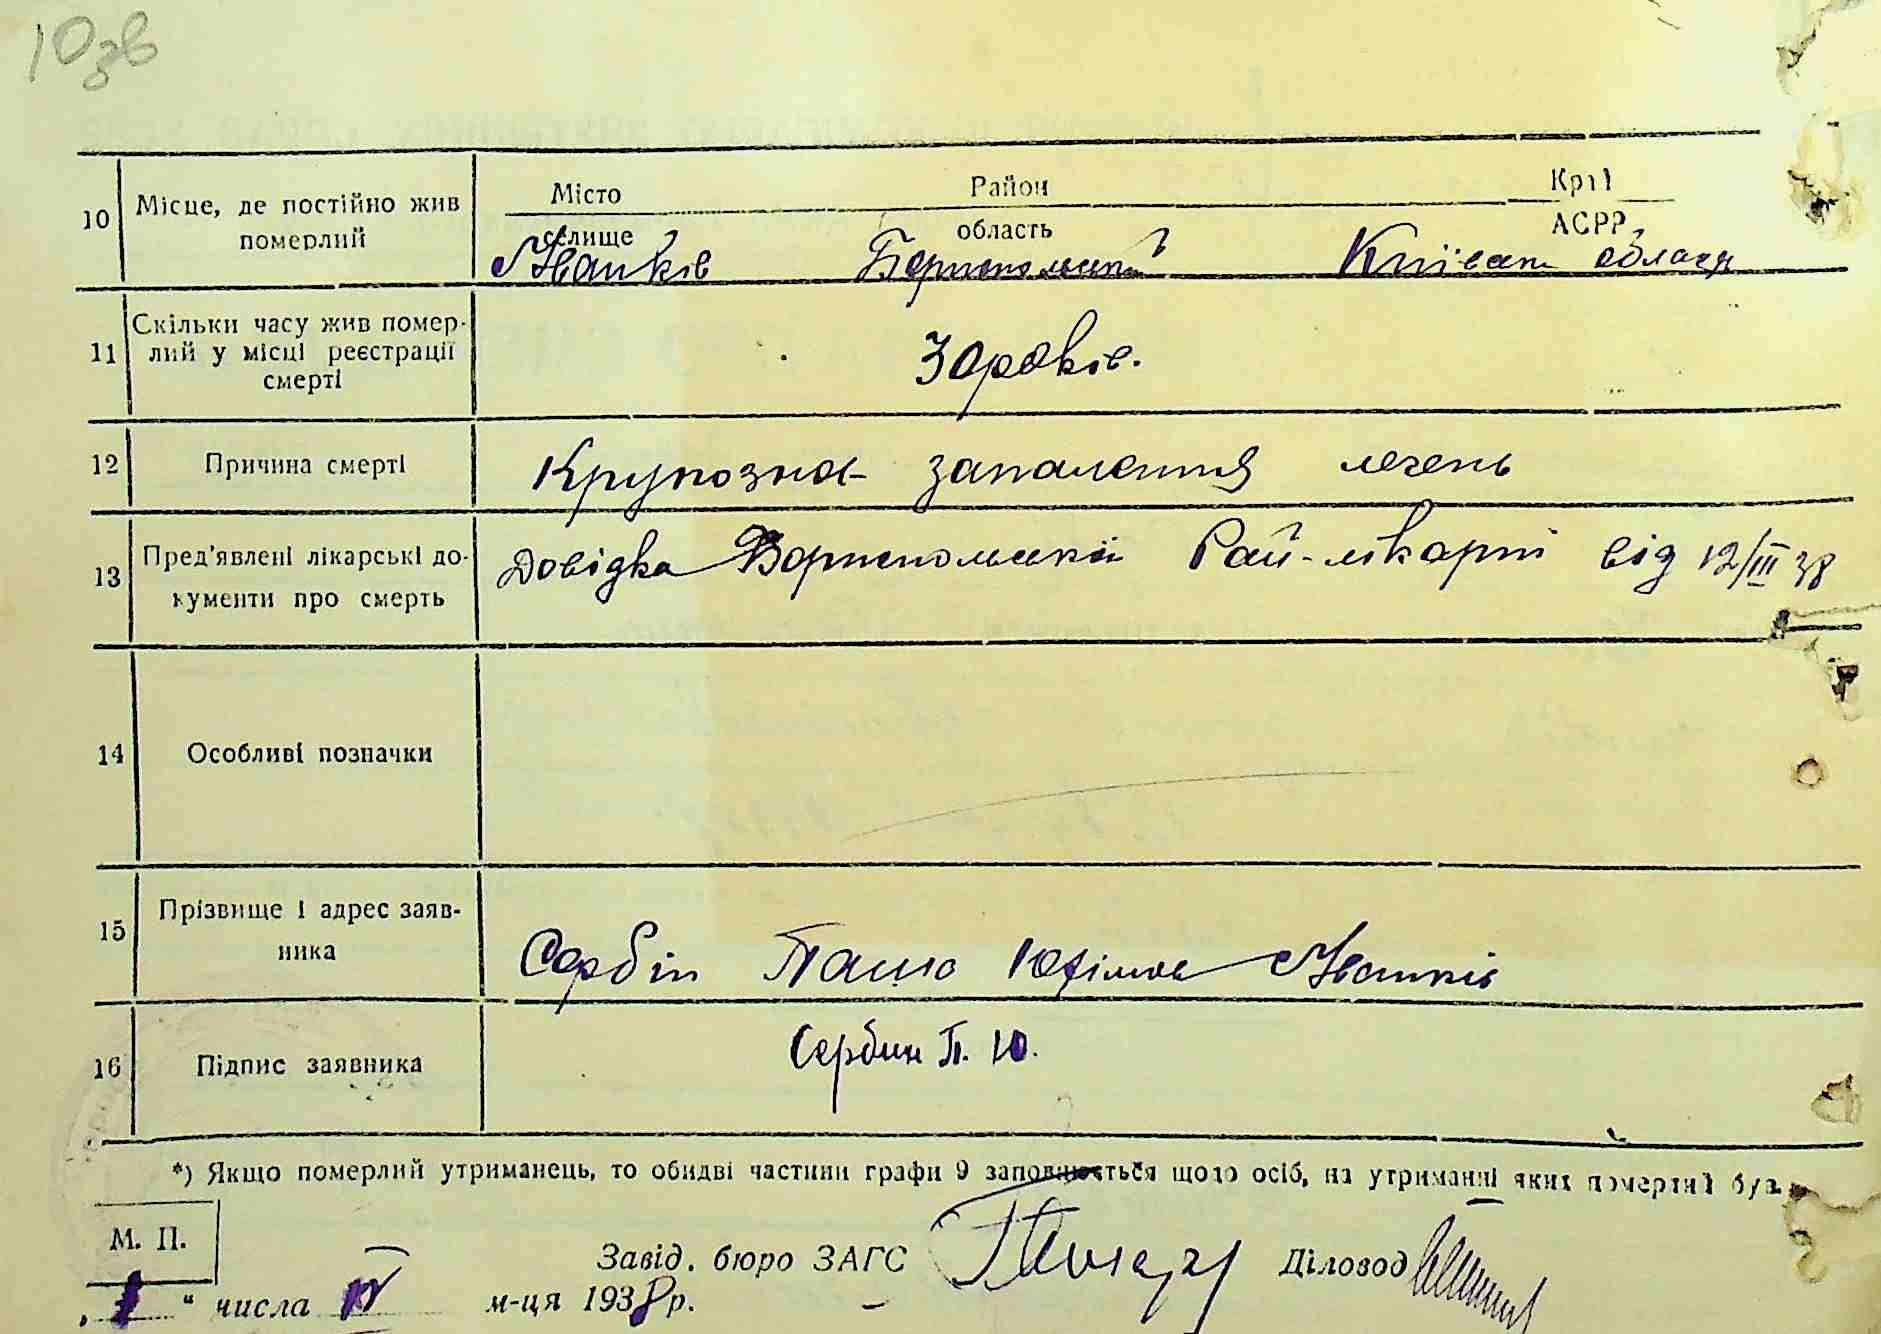 10зв
10 Місце, де постійно жив померлий
Місто Район Край
селище область АСРР
Іванків Бориспольський Київська область
11 Скільки часу жив помер-
лий у місці реєстрації
смерті
30 років.
12 Причина смерті
Крупозна запалення легень
13 Пред'явлені лікарські до-
кументи про смерть
Довідка Бориспольської Рай-лікарні від 12/III 38
14 Особливі позначки
15 Прізвище і адрес заяв-
ника
Сербін Юхімов Іванків
16 Підпис заявника
Сербин П. Ю.
*) Якщо померлий утриманець, то обидві частини графи 9 заповнюється щодо осіб, на утриманні яких померлий був.
М. П.
Завід. бюро ЗАГС Діловод
„ “ числа IV м-ця 1938 р.